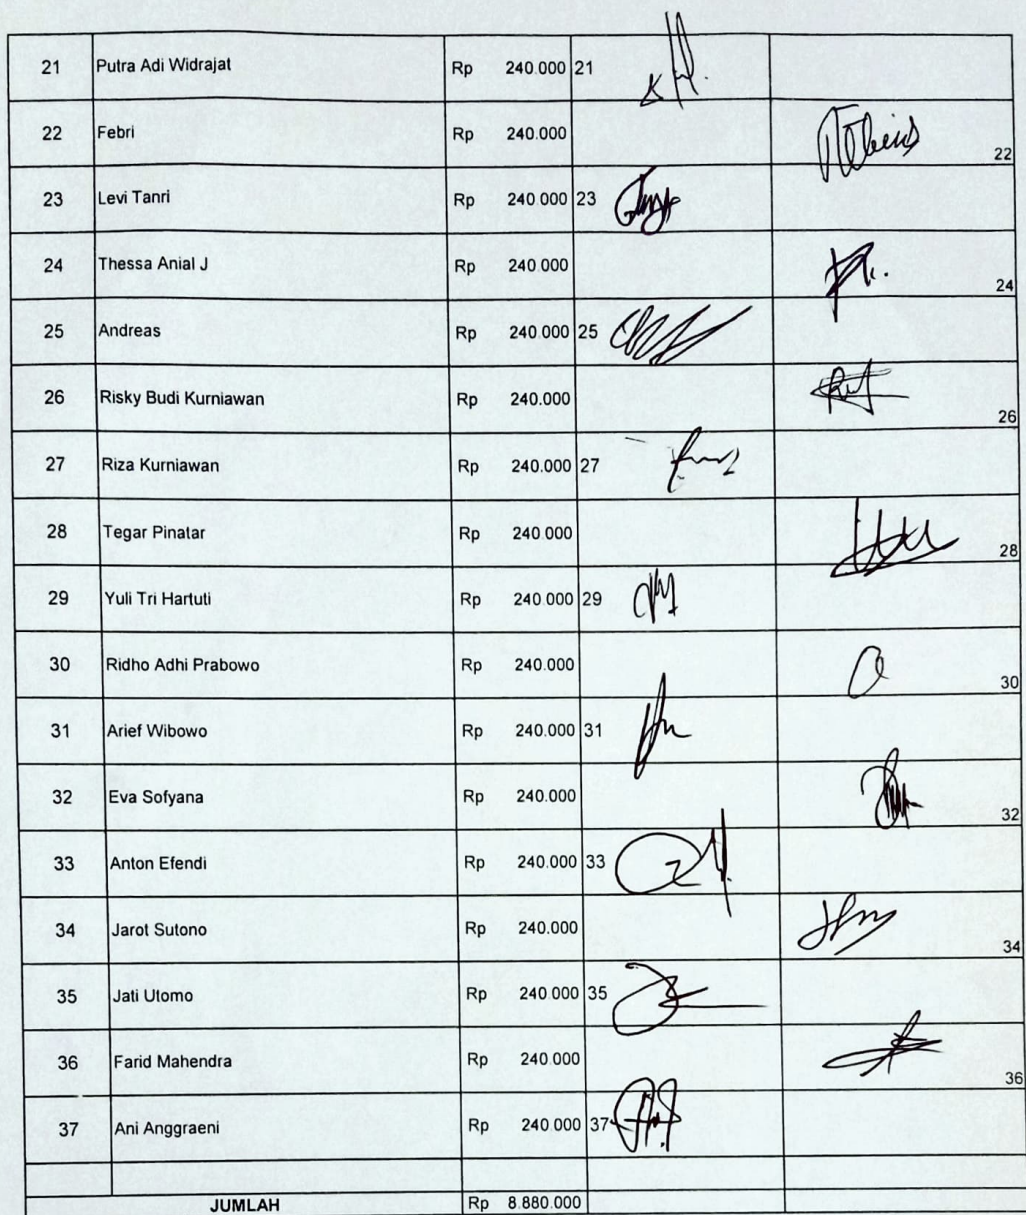 21 Putra Adi Widrajat Rp 240.000 21
22 Febri Rp 240.000 22
23 Levi Tanri Rp 240.000 23
24 Thessa Anial J Rp 240.000 24
25 Andreas Rp 240.000 25
26 Risky Budi Kurniawan Rp 240.000 26
27 Riza Kurniawan Rp 240.000 27
28 Tegar Pinatar Rp 240.000 28
29 Yuli Tri Hartuti Rp 240.000 29
30 Ridho Adhi Prabowo Rp 240.000 30
31 Arief Wibowo Rp 240.000 31
32 Eva Sofyana Rp 240.000 32
33 Anton Efendi Rp 240.000 33
34 Jarot Sutono Rp 240.000 34
35 Jati Utomo Rp 240.000 35
36 Farid Mahendra Rp 240.000 36
37 Ani Anggraeni Rp 240.000 37
JUMLAH Rp 8.880.000